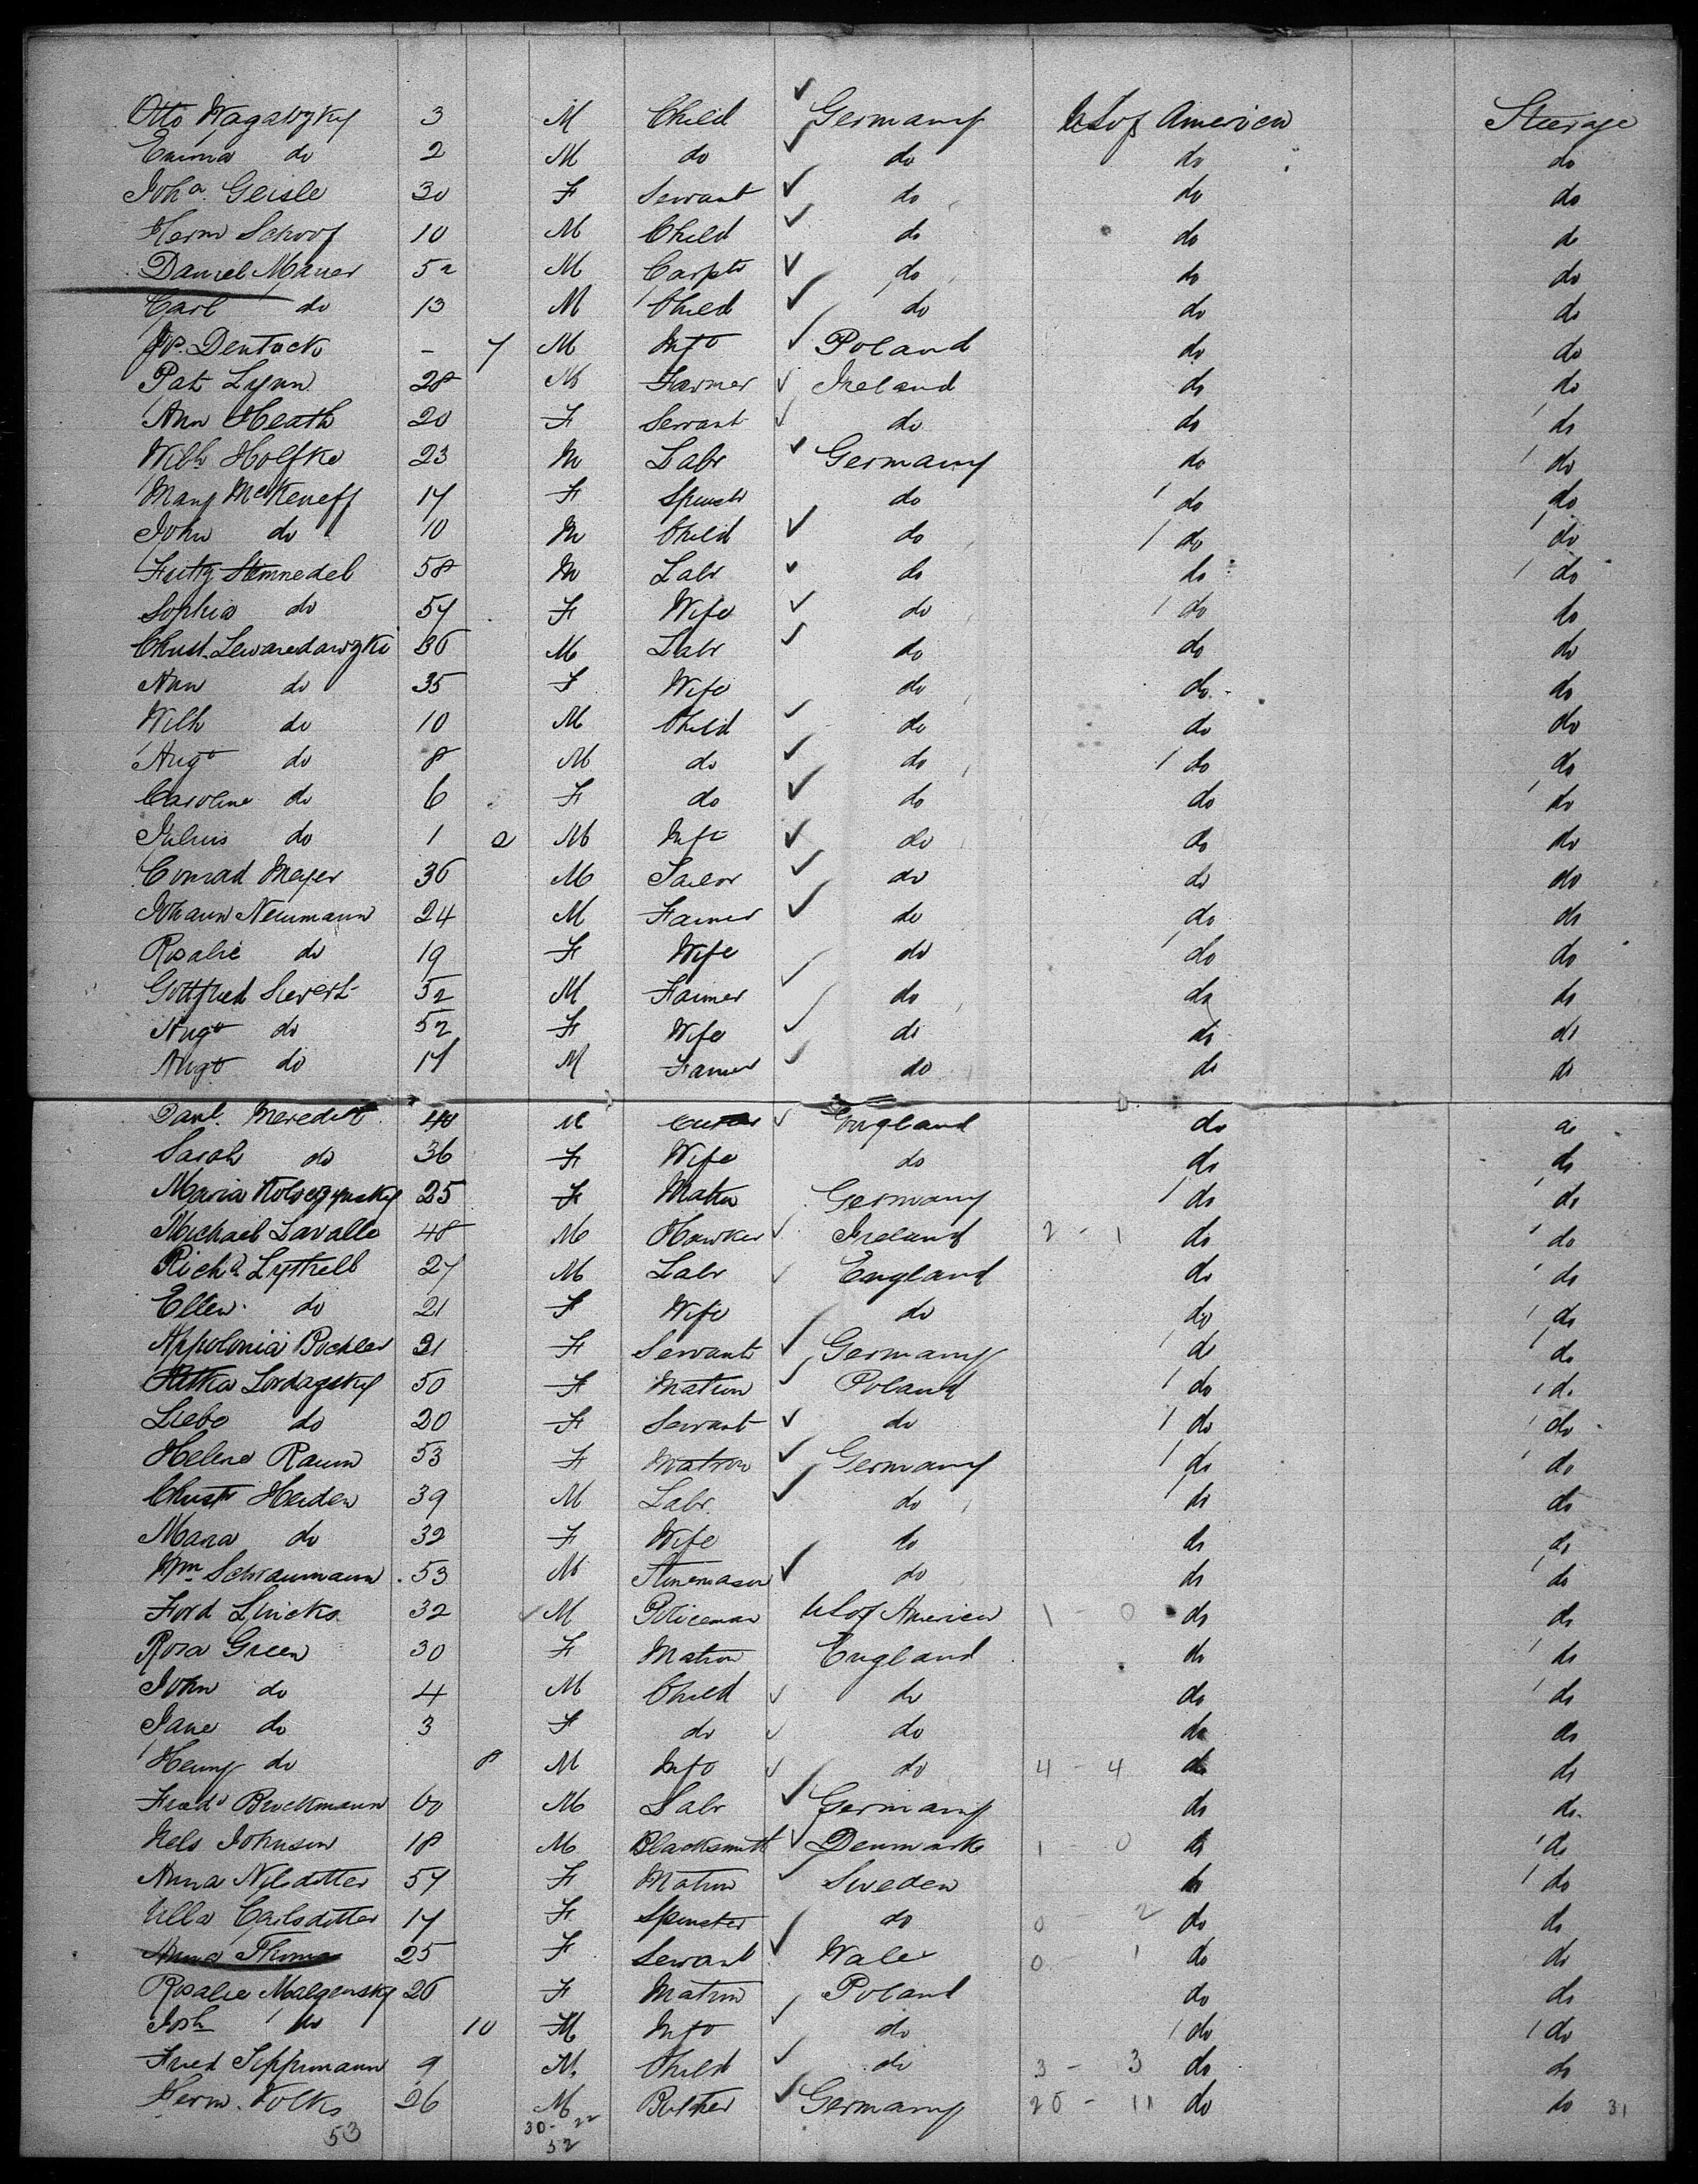 Otto Wagatzky 3 M Child Germany US of America Steerage
Emma do 2 M do do do do
Joha. Geisle 30 F Servant do do do
Herm Schoof 10 M Child do do do
Daniel Maurer 52 M Carptr do do do
Carl do 13 M Child do do do
Dentack - 7 M Inft Poland do do
Pat Lynn 28 M Farmer Ireland do do
Ann Heath 20 F Servant do do do
Wilh Holfke 23 M Labr Germany do do
Mary 17 F Spinstr do do do
John do 10 M Child do do do
58 M Labr do do do
Sophia do 57 F Wife do do do
Christ. Lewanedawzki 36 M Labr do do do
Ann do 35 F Wife do do do
Wilh do 10 M Child do do do
Augt do 8 M do do do do
Caroline do 6 F do do do do
Julius do 1 2 M Inft do do do
Conrad Meyer 36 M do do do
Johann Neumann 24 M Farmer do do do
Rosalie do 19 F Wife do do do
Gottfried Sievert 52 M Farmer do do do
Augt do 52 F Wife do do do
Augt do 17 M Farmer do do do
Danl. Meredith 40 M England do do
Sarah do 36 F Wife do do do
Maria 25 F Matrn Germany do do
Michael Lavalle 48 M Hawker Ireland 2 - 1 do do
Richd Lythell 27 M Labr England do do
Ellen do 21 F Wife do do do
Appolonia Buchler 21 F Servant Germany do do
Lordagsky 50 F Matron Poland do do
Liebe do 20 F Servant do do do
Helene Raum 53 F Matron Germany do do
Christ Heiden 39 M Labr. do do do
Maria do 32 F Wife do do do
Wm Schraumann 53 M Stonemason do do do
Ford 32 M Policeman US of America 1 - 0 do do
Rosa Green 30 F Matron England do do
John do 4 M Child do do do
Jane do 3 F do do do do
Henry do 8 M Inft do 4 - 4 do do
Fredk Brockmann 60 M Labr Germany do do
Nels Johnson 18 M Blacksmith Denmark 1 - 0 do do
Anna Nilsdotter 57 F Matron Sweden do do
Ulla Carlsdotter 17 F Spinster do 0 - 2 do do
Anna Thomas 25 F Servant Wales 0 - 1 do do
Rosalie Malgensky 26 F Matron Poland do do
Josh do 10 M Inft do do do
Fried Tippmann 9 M Child do 3 - 3 do do
Herm. Volks 26 M Butcher Germany 20 - 11 do do 31
53 30 - 22
52